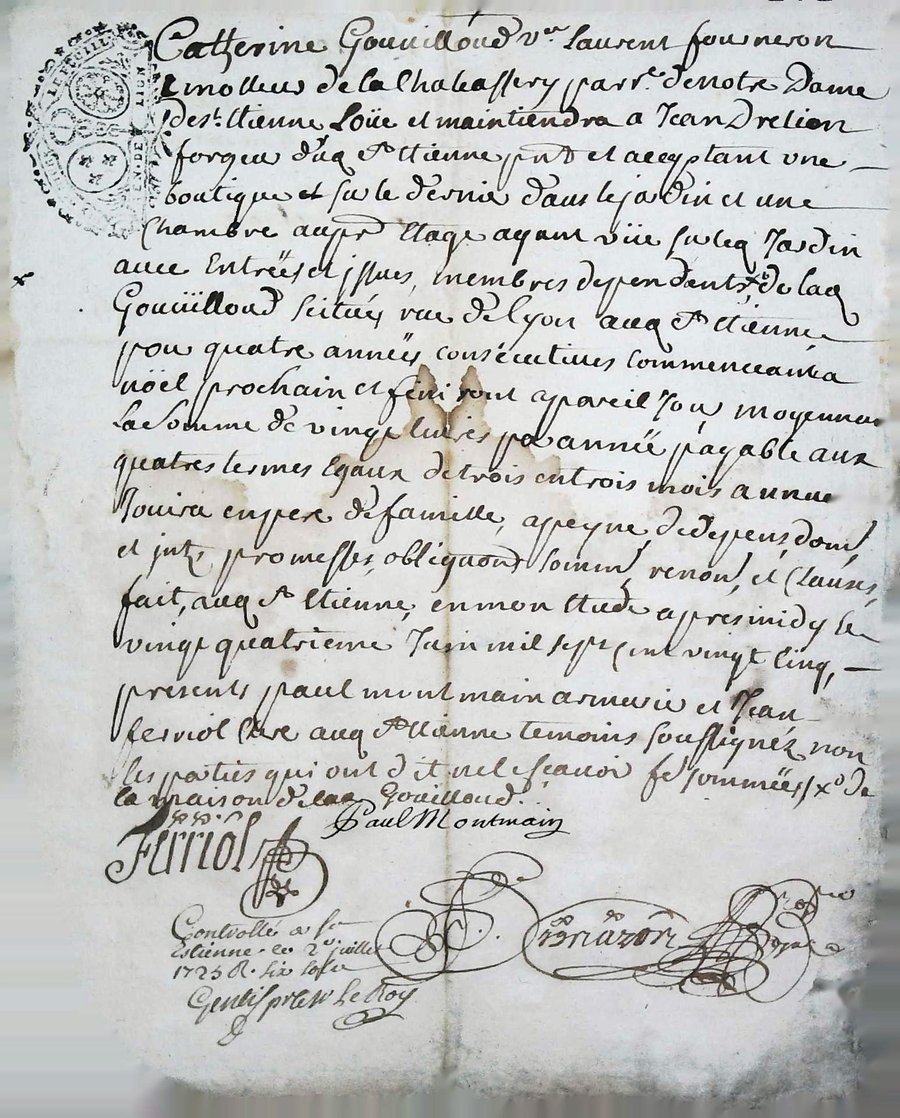 Catherine Gouilloud v.ve Laurent fourneron
de la Chabassery parr.e de notre Dame
de s.t Etienne Loüe et maintiendra a Jean Drelion
forgeu dud s.t Etienne pnt et acceptant une
boutique et sur le dernie dans le jardin et une
Chambre au pr etage ayant vüe sur led Jardin
avec Entreës et jssues, membres dependents x de lad
Gouïilloud scituéz rue de Lyon aud s.t Etienne
pour quatre anneës consécutives commenceant a
nöel prochain et finiront a pareil Jour moyennant
la somme de vingt livres par anneë payable aux
quatres termes Egaux de trois en trois mois
Jouira en pere de famille, a peyne de depens, dom,
et jnts, promesses, obligaons soumm, renon, et clauses,
fait, aud s.t Etienne, en mon Etude apres midy le
vingt quatrieme Juin mil sept cent vingt cinq,
presents paul montmain armurie et Jean
ferriol clerc aud s.t Etienne temoins soussignéz non
les parties qui ont dit ne le scavoir de sommeës x de
la maison de lad Gouilloud.
Paul Montmain
Ferriol
Controllé a s.t
Estienne le 2e juillet
1725 R. six sols
Gentis pr le Roy